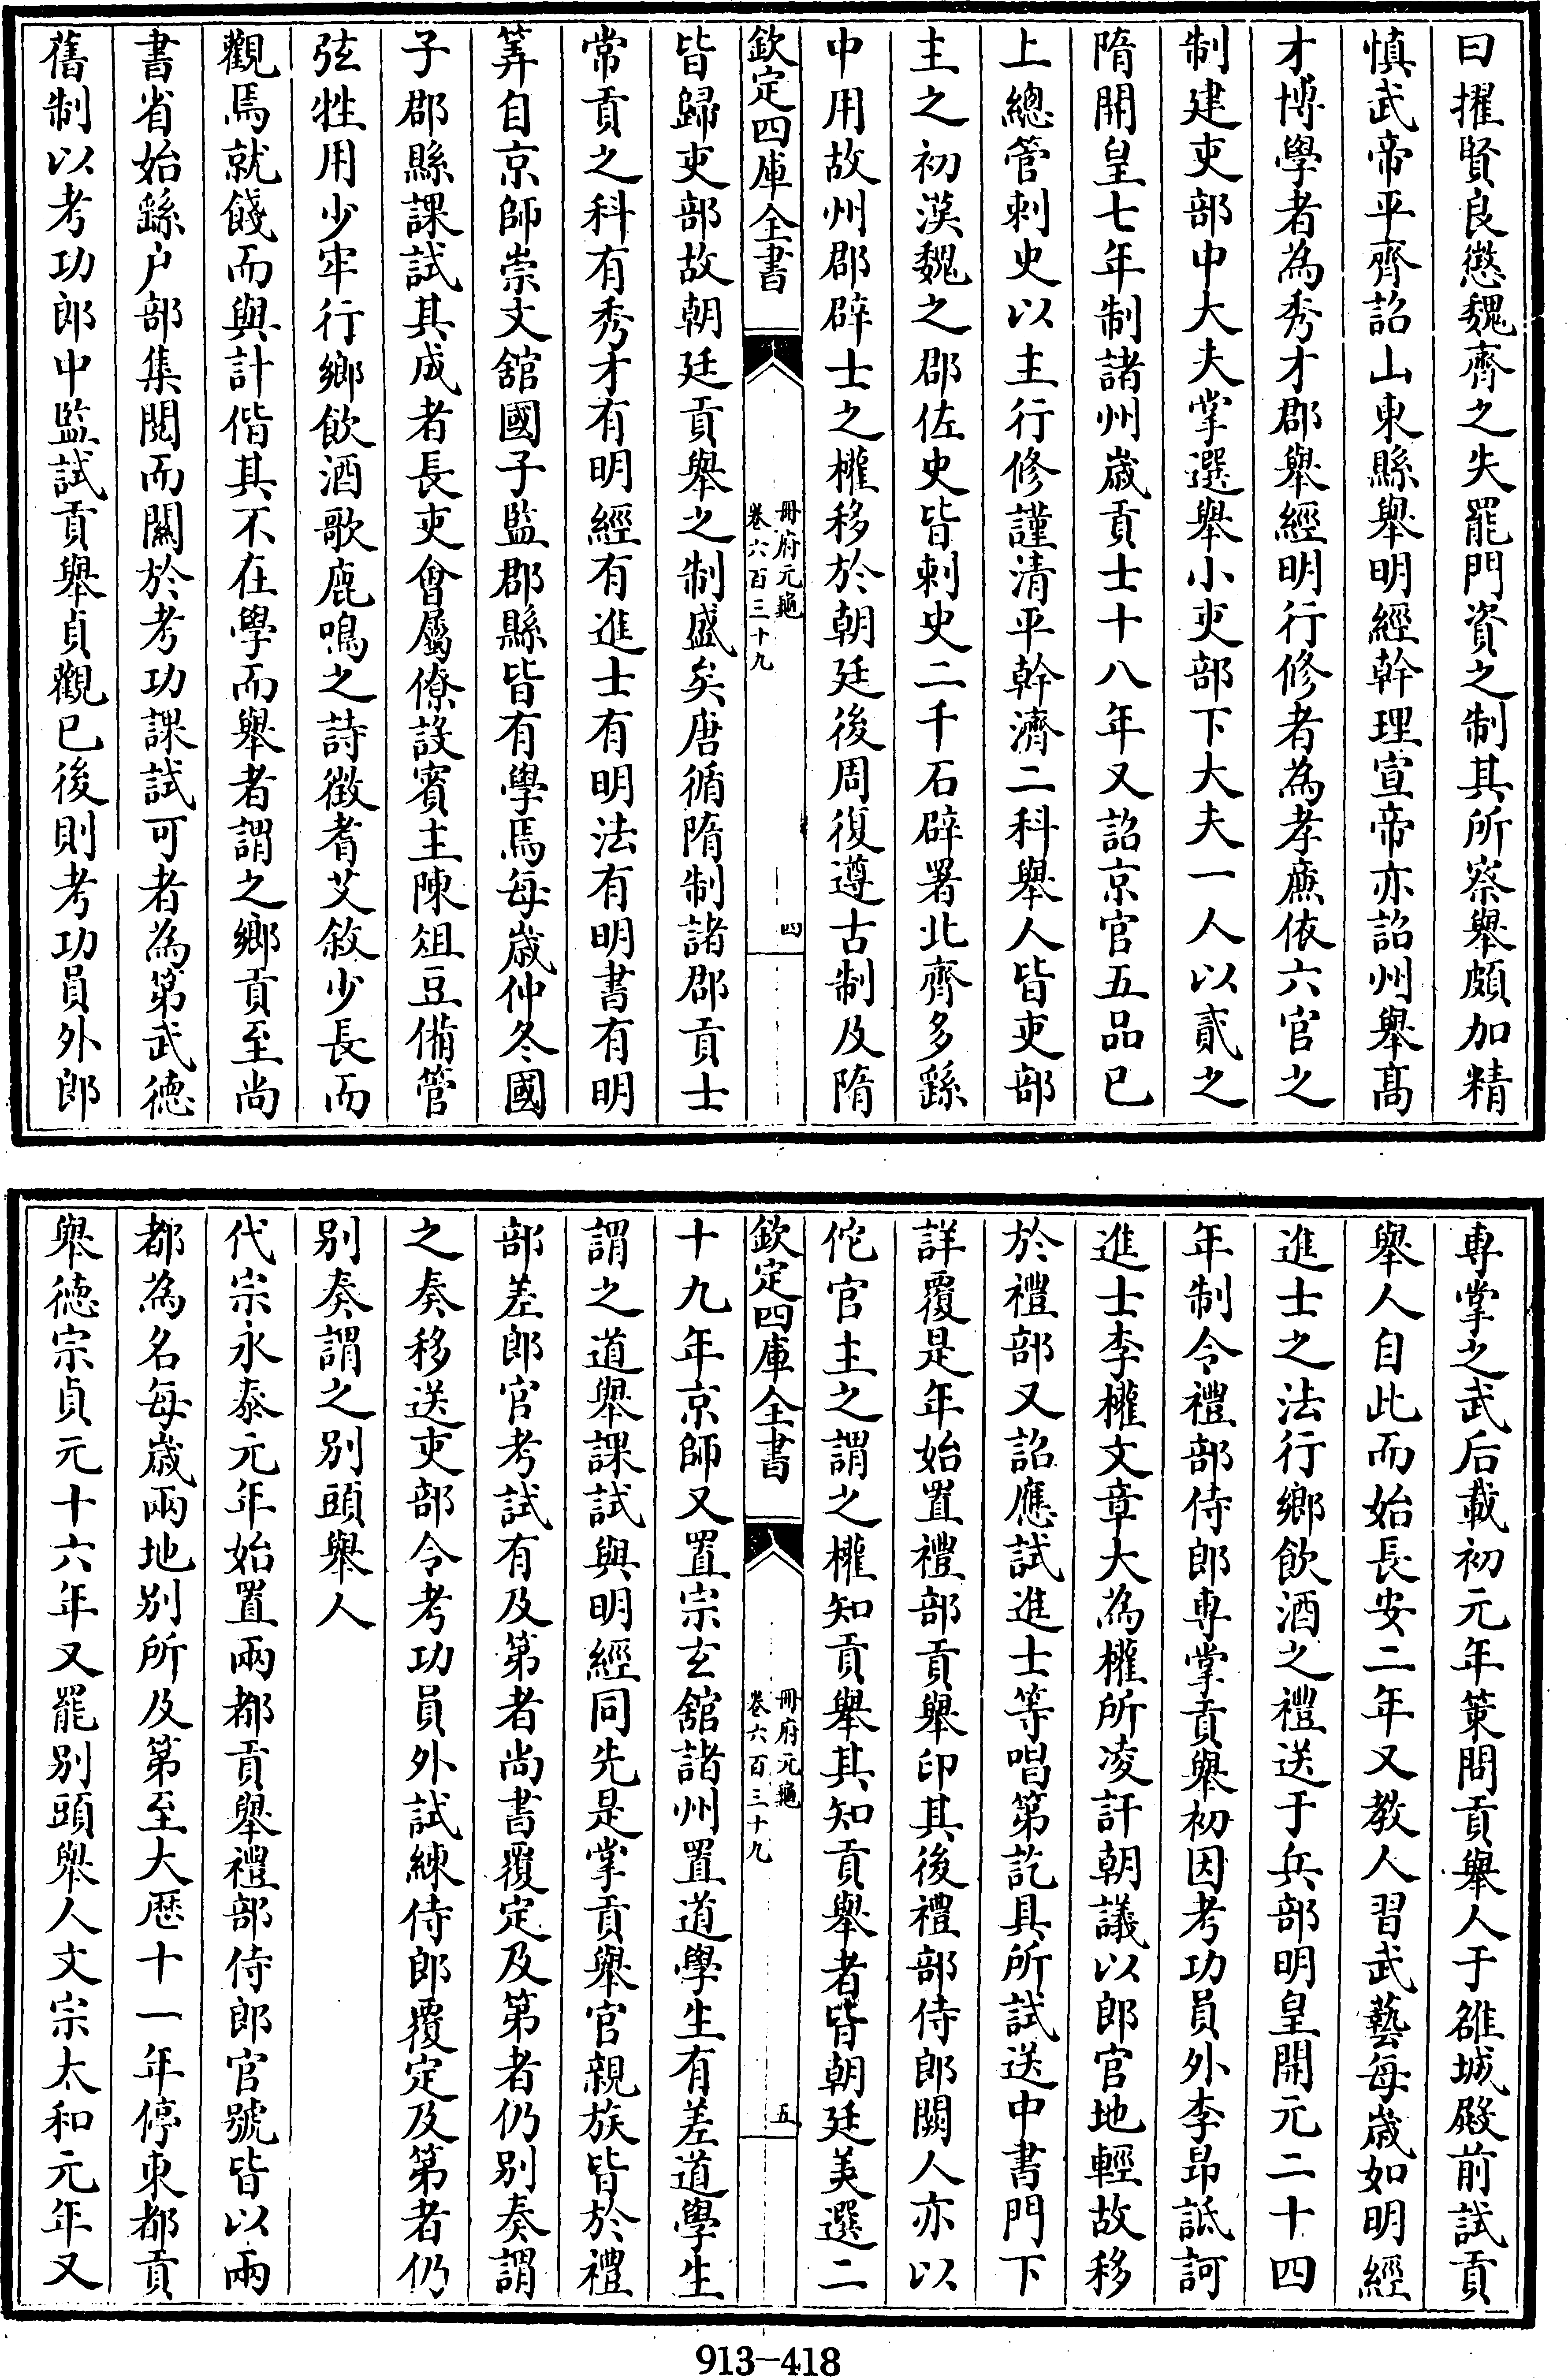 曰擢賢良懲魏齊之失罷門資之制其所察舉頗加精
慎武帝平齊詔山東縣舉明經幹理宣帝亦詔州舉髙
才博學者為秀才郡舉經明行修者為孝㢘依六官之
制建吏部中大夫掌選舉小吏部下大夫一人以貳之
隋開皇七年制諸州歳貢士十八年又詔京官五品已
上總管刺史以主行修謹清平幹濟二科舉人皆吏部
主之初漢魏之郡佐史皆刺史二千石辟署北齊多繇
中用故州郡辟士之權移於朝廷後周復遵古制及隋
欽定四庫全書
冊府元龜
卷六百三十九
四
皆歸吏部故朝廷貢舉之制盛矣唐循隋制諸郡貢士
常貢之科有秀才有明經有進士有明法有明書有明
筭自京師崇文舘國子監郡縣皆有學焉每歳仲冬國
子郡縣課試其成者長吏㑹屬僚設賓主陳俎豆備管
弦牲用少牢行鄉飲酒歌鹿鳴之詩徵耆艾敘少長而
觀焉就餞而與計偕其不在學而舉者謂之鄉貢至尚
書省始繇户部集閱而關於考功課試可者為第武德
舊制以考功郎中監試貢舉貞觀已後則考功員外郎
専掌之武后載初元年策問貢舉人于雒城殿前試貢
舉人自此而始長安二年又教人習武藝每歳如明經
進士之法行鄉飲酒之禮送于兵部明皇開元二十四
年制令禮部侍郎専掌貢舉初因考功員外李昂詆訶
進士李權文章大為權所凌訐朝議以郎官地輕故移
於禮部又詔應試進士等唱第訖具所試送中書門下
詳覆是年始置禮部貢舉印其後禮部侍郎闕人亦以
佗官主之謂之權知貢舉其知貢舉者皆朝廷美選二
欽定四庫全書
冊府元龜
卷六百三十九
五
十九年京師又置宗玄舘諸州置道學生有差道學生
謂之道舉課試與明經同先是掌貢舉官親族皆於禮
部差郎官考試有及第者尚書覆定及第者仍别奏謂
之奏移送吏部令考功員外試練侍郎覆定及第者仍
别奏謂之别頭舉人
代宗永泰元年始置兩都貢舉禮部侍郎官號皆以兩
都為名每歳兩地别所及第至大厯十一年停東都貢
舉德宗貞元十六年又罷别頭舉人文宗太和元年又
913-418